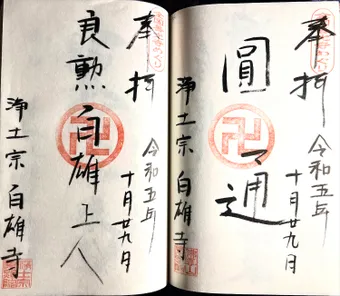 奉拝
令和五年
十月廿九日
圓通
浄土宗 自雄寺
奉拝
令和五年
十月廿九日
良勲自雄上人
浄土宗 自雄寺